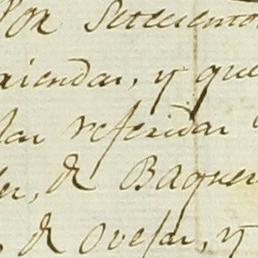 Por Setecento
aiendas, y que
las referidas
er, de Baquer
, de Ovejas, y